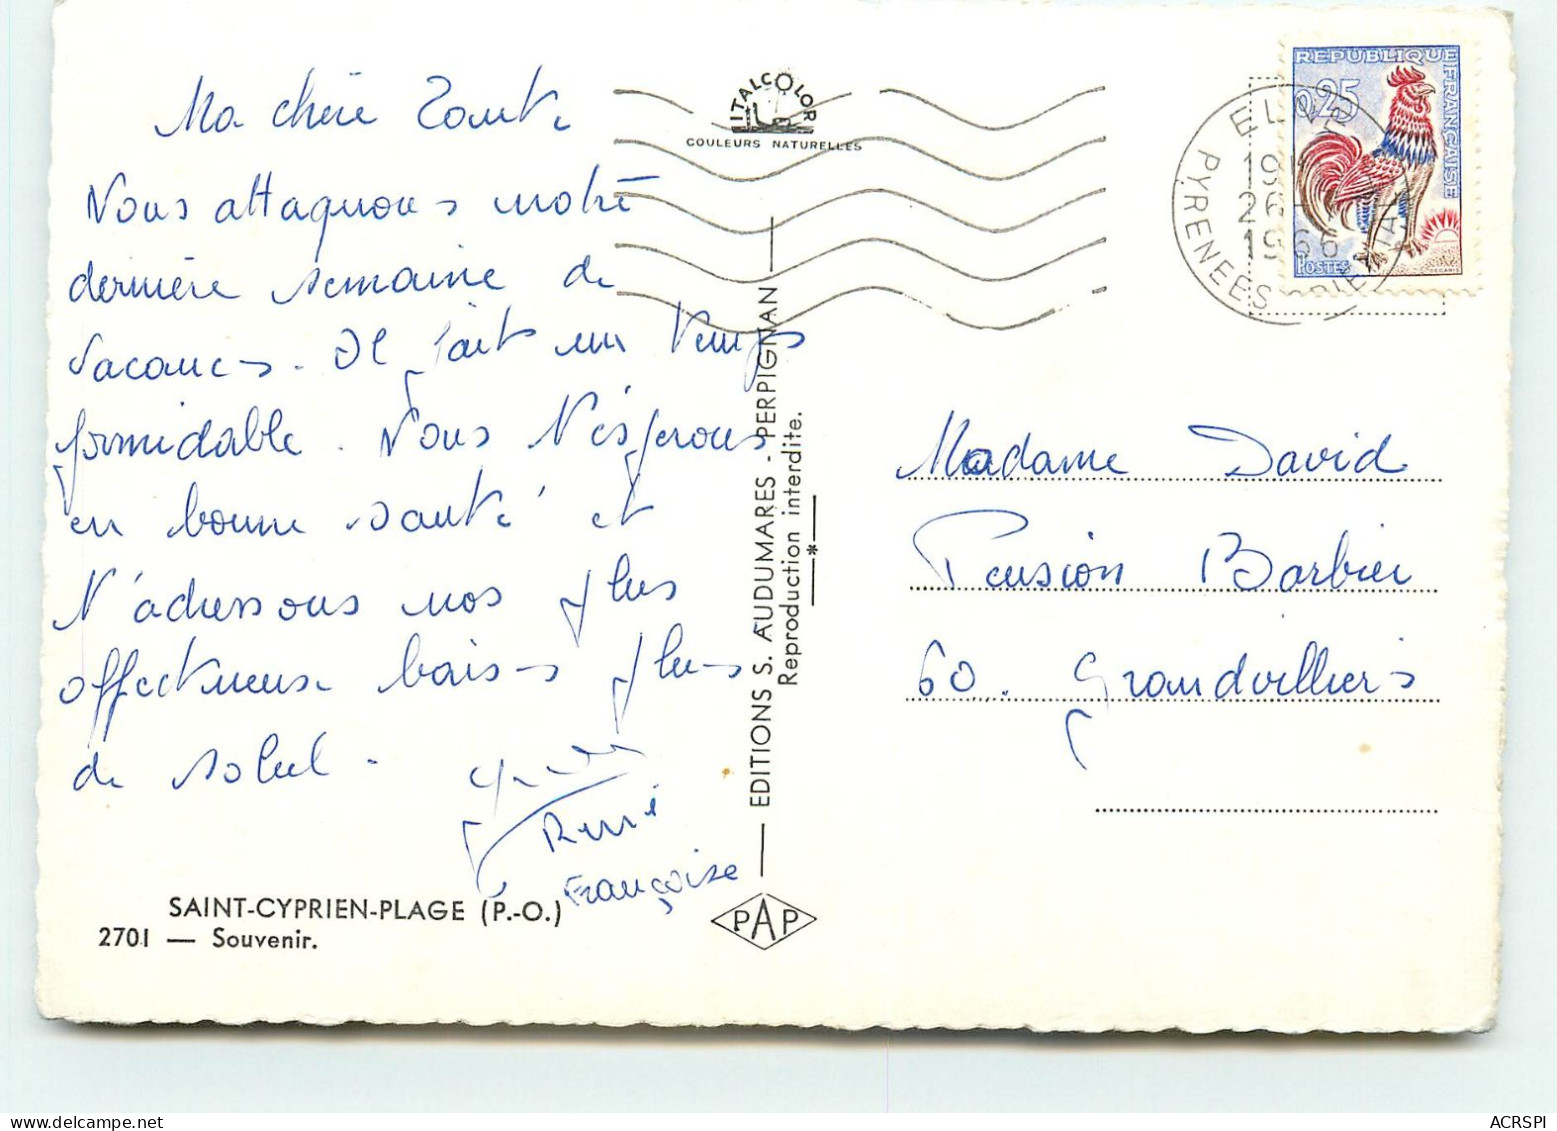 Ma chère Tante
Nous attaquons notre
dernière semaine de
vacances. Il fait un temps
formidable. Nous t'espérons
en bonne santé et
t'adressons nos plus
affectueux baisers plus
de soleil.
René
Françoise
SAINT-CYPRIEN-PLAGE (P.-O.)
2701 — Souvenir.
ITALCOLOR
COULEURS NATURELLES
EDITIONS S. AUDUMARES - PERPIGNAN
Reproduction interdite.
*
PAP
REPUBLIQUE FRANÇAISE
0,25
POSTES
DECARIS
PYRENEES ORIENTALES
1966
Madame David
Pension Barbier
60. Grandvilliers
ACRSPI